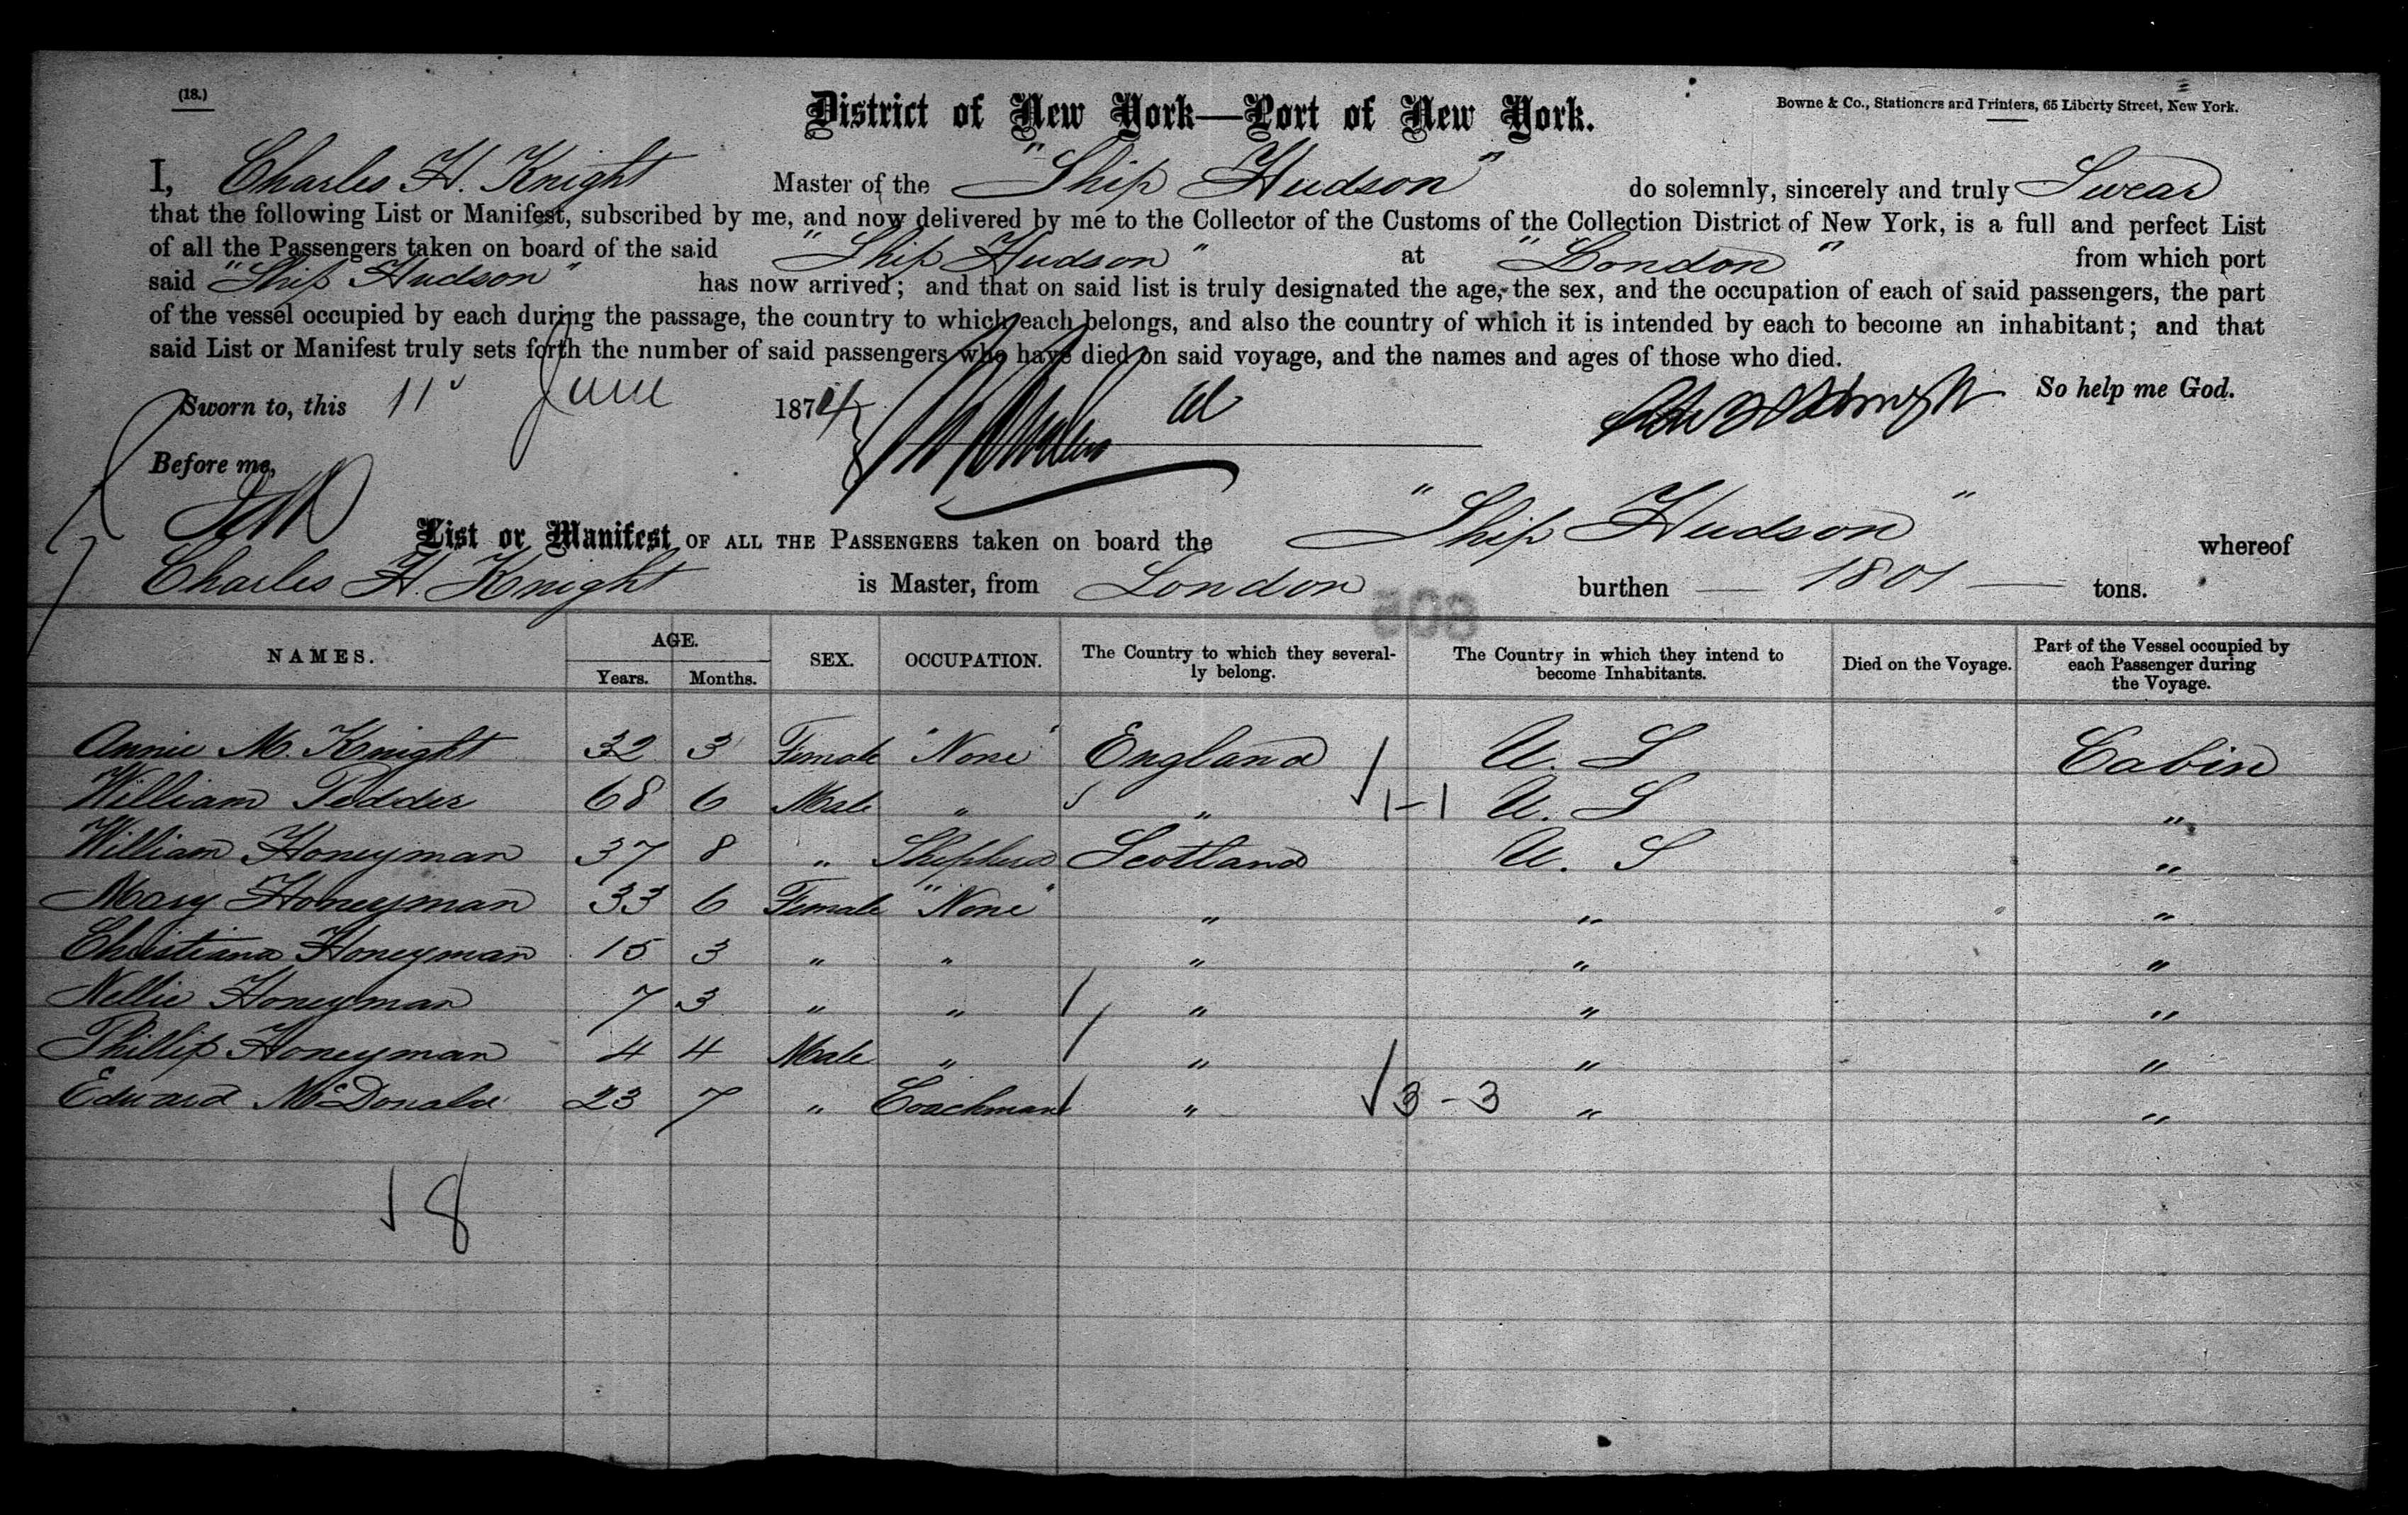 (18.)
District of New York—Port of New York.
Bowne & Co., Stationers and Printers, 65 Liberty Street, New York.
I, Charles H. Knight Master of the "Ship Hudson" do solemnly, sincerely and truly Swear
that the following List or Manifest, subscribed by me, and now delivered by me to the Collector of the Customs of the Collection District of New York, is a full and perfect List
of all the Passengers taken on board of the said "Ship Hudson" at "London" from which port
said "Ship Hudson" has now arrived; and that on said list is truly designated the age, the sex, and the occupation of each of said passengers, the part
of the vessel occupied by each during the passage, the country to which each belongs, and also the country of which it is intended by each to become an inhabitant; and that
said List or Manifest truly sets forth the number of said passengers who have died on said voyage, and the names and ages of those who died.
So help me God.
Sworn to, this 11 June 1874
Before me,
List or Manifest OF ALL THE PASSENGERS taken on board the "Ship Hudson" whereof
Charles H. Knight is Master, from London burthen — 1801 — tons.
NAMES. AGE. Years. Months. SEX. OCCUPATION. The Country to which they severally belong. The Country in which they intend to become Inhabitants. Died on the Voyage. Part of the Vessel occupied by each Passenger during the Voyage.
Annie M. Knight 32 3 Female "None" England U. S Cabin
William Tedder 68 6 Male " " 1-1 U. S "
William Honeyman 37 8 " Shepherd Scotland U. S "
Mary Honeyman 33 6 Female "None" " " "
Christiana Honeyman 15 3 " " " " "
Nellie Honeyman 7 3 " " " " "
Phillip Honeyman 4 4 Male " " " "
Edward McDonald 23 7 " Coachman " 3-3 " "
8